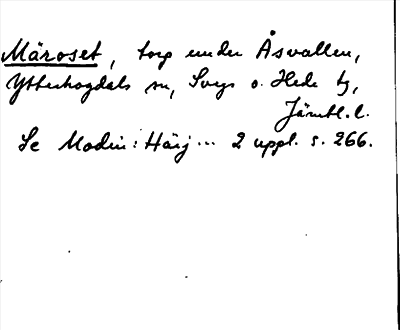 Märoset, torp under Åsvallen,
Ytterhogdals sn, Svegs o. Hede tg,
Jämtl. l.
Se Modin: Härj... 2 uppl. s. 266.